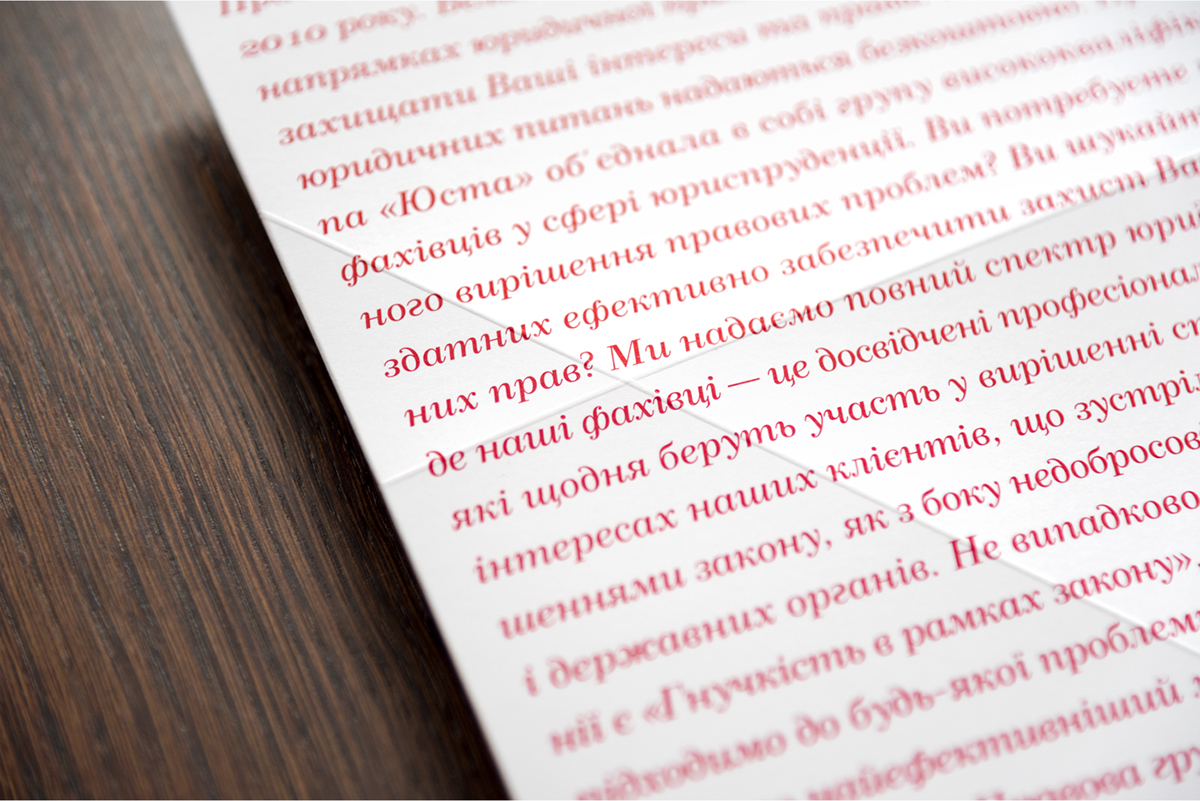 2010 року.
напрямках юридичної
захищати Ваші інтереси та
юридичних питань надаються безкоштовно.
па «Юста» об'єднала в собі групу
фахівців у сфері юриспруденції. Ви потребуєте
ного вирішення правових проблем? Ви
здатних ефективно забезпечити захист
них прав? Ми надаємо повний спектр
де наші фахівці — це досвідчені
які щодня беруть участь у вирішенні
інтересах наших клієнтів, що
шеннями закону, як з боку
і державних органів. Не випадково
нії є «Гнучкість в рамках закону»,
підходимо до будь-якої
найефективніший